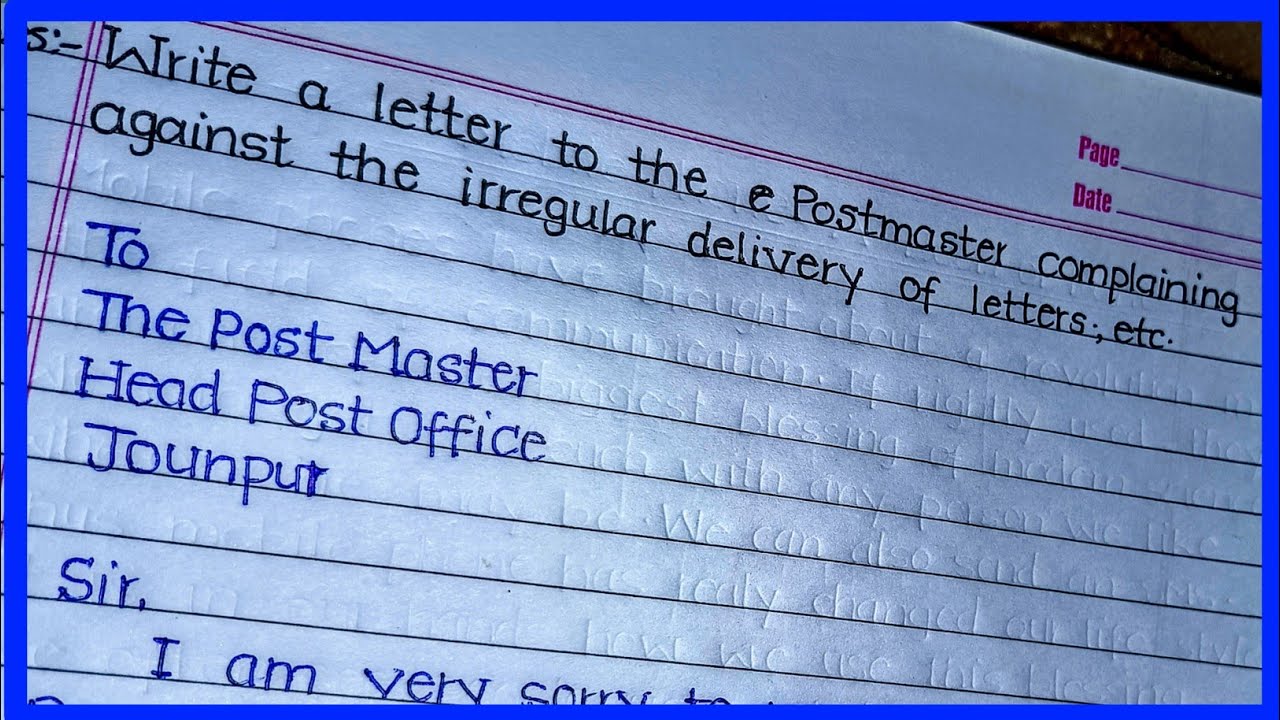 s:- Write a letter to the e Postmaster complaining
against the irregular delivery of letters, etc.
Page
Date
To
The Post Master
Head Post Office
Jounpur
Sir,
I am very sorry to